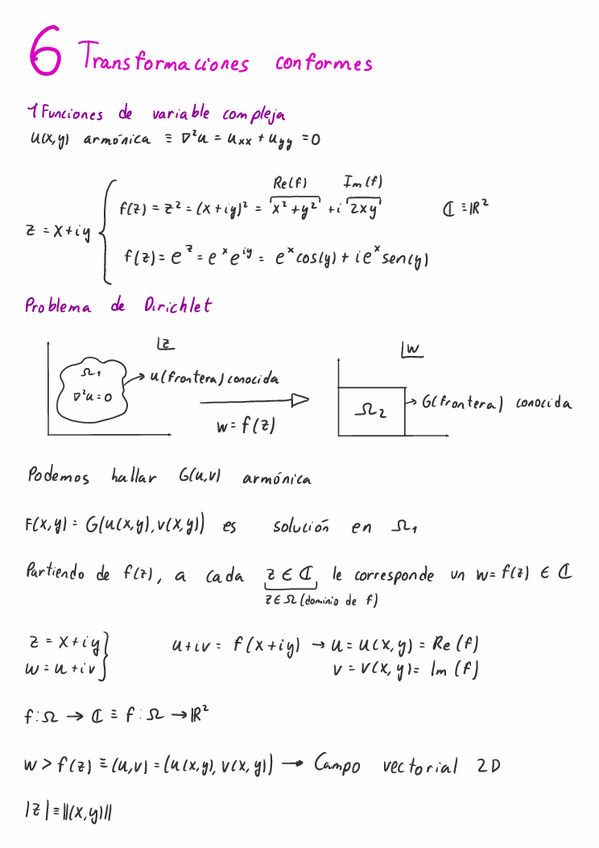 6 Transformaciones conformes
1 Funciones de variable compleja
u(x,y) armónica ≡ ∇²u = uxx + uyy = 0
Re(f) Im(f)
z = x+iy { f(z) = z² = (x+iy)² = x²+y² + i 2xy ℂ ≡ ℝ²
f(z) = e^z = e^x e^iy = e^x cos(y) + i e^x sen(y)
Problema de Dirichlet
z
Ω₁
∇²u = 0
u(frontera) conocida
w = f(z)
w
Ω₂
G(frontera) conocida
Podemos hallar G(u,v) armónica
F(x,y) = G(u(x,y), v(x,y)) es solución en Ω₁
Partiendo de f(z), a cada z ∈ ℂ le corresponde un w = f(z) ∈ ℂ
z ∈ Ω (dominio de f)
z = x+iy } u+iv = f(x+iy) → u = u(x,y) = Re(f)
w = u+iv v = v(x,y) = Im(f)
f: Ω → ℂ ≡ f: Ω → ℝ²
w > f(z) ≡ (u,v) = (u(x,y), v(x,y)) → Campo vectorial 2D
|z| ≡ ||(x,y)||